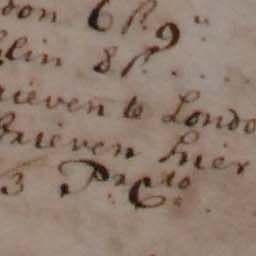 don 6 P. 9 "
lin 8 P. . . .
rieven te Londo
Brieven hier
3 P. Cto